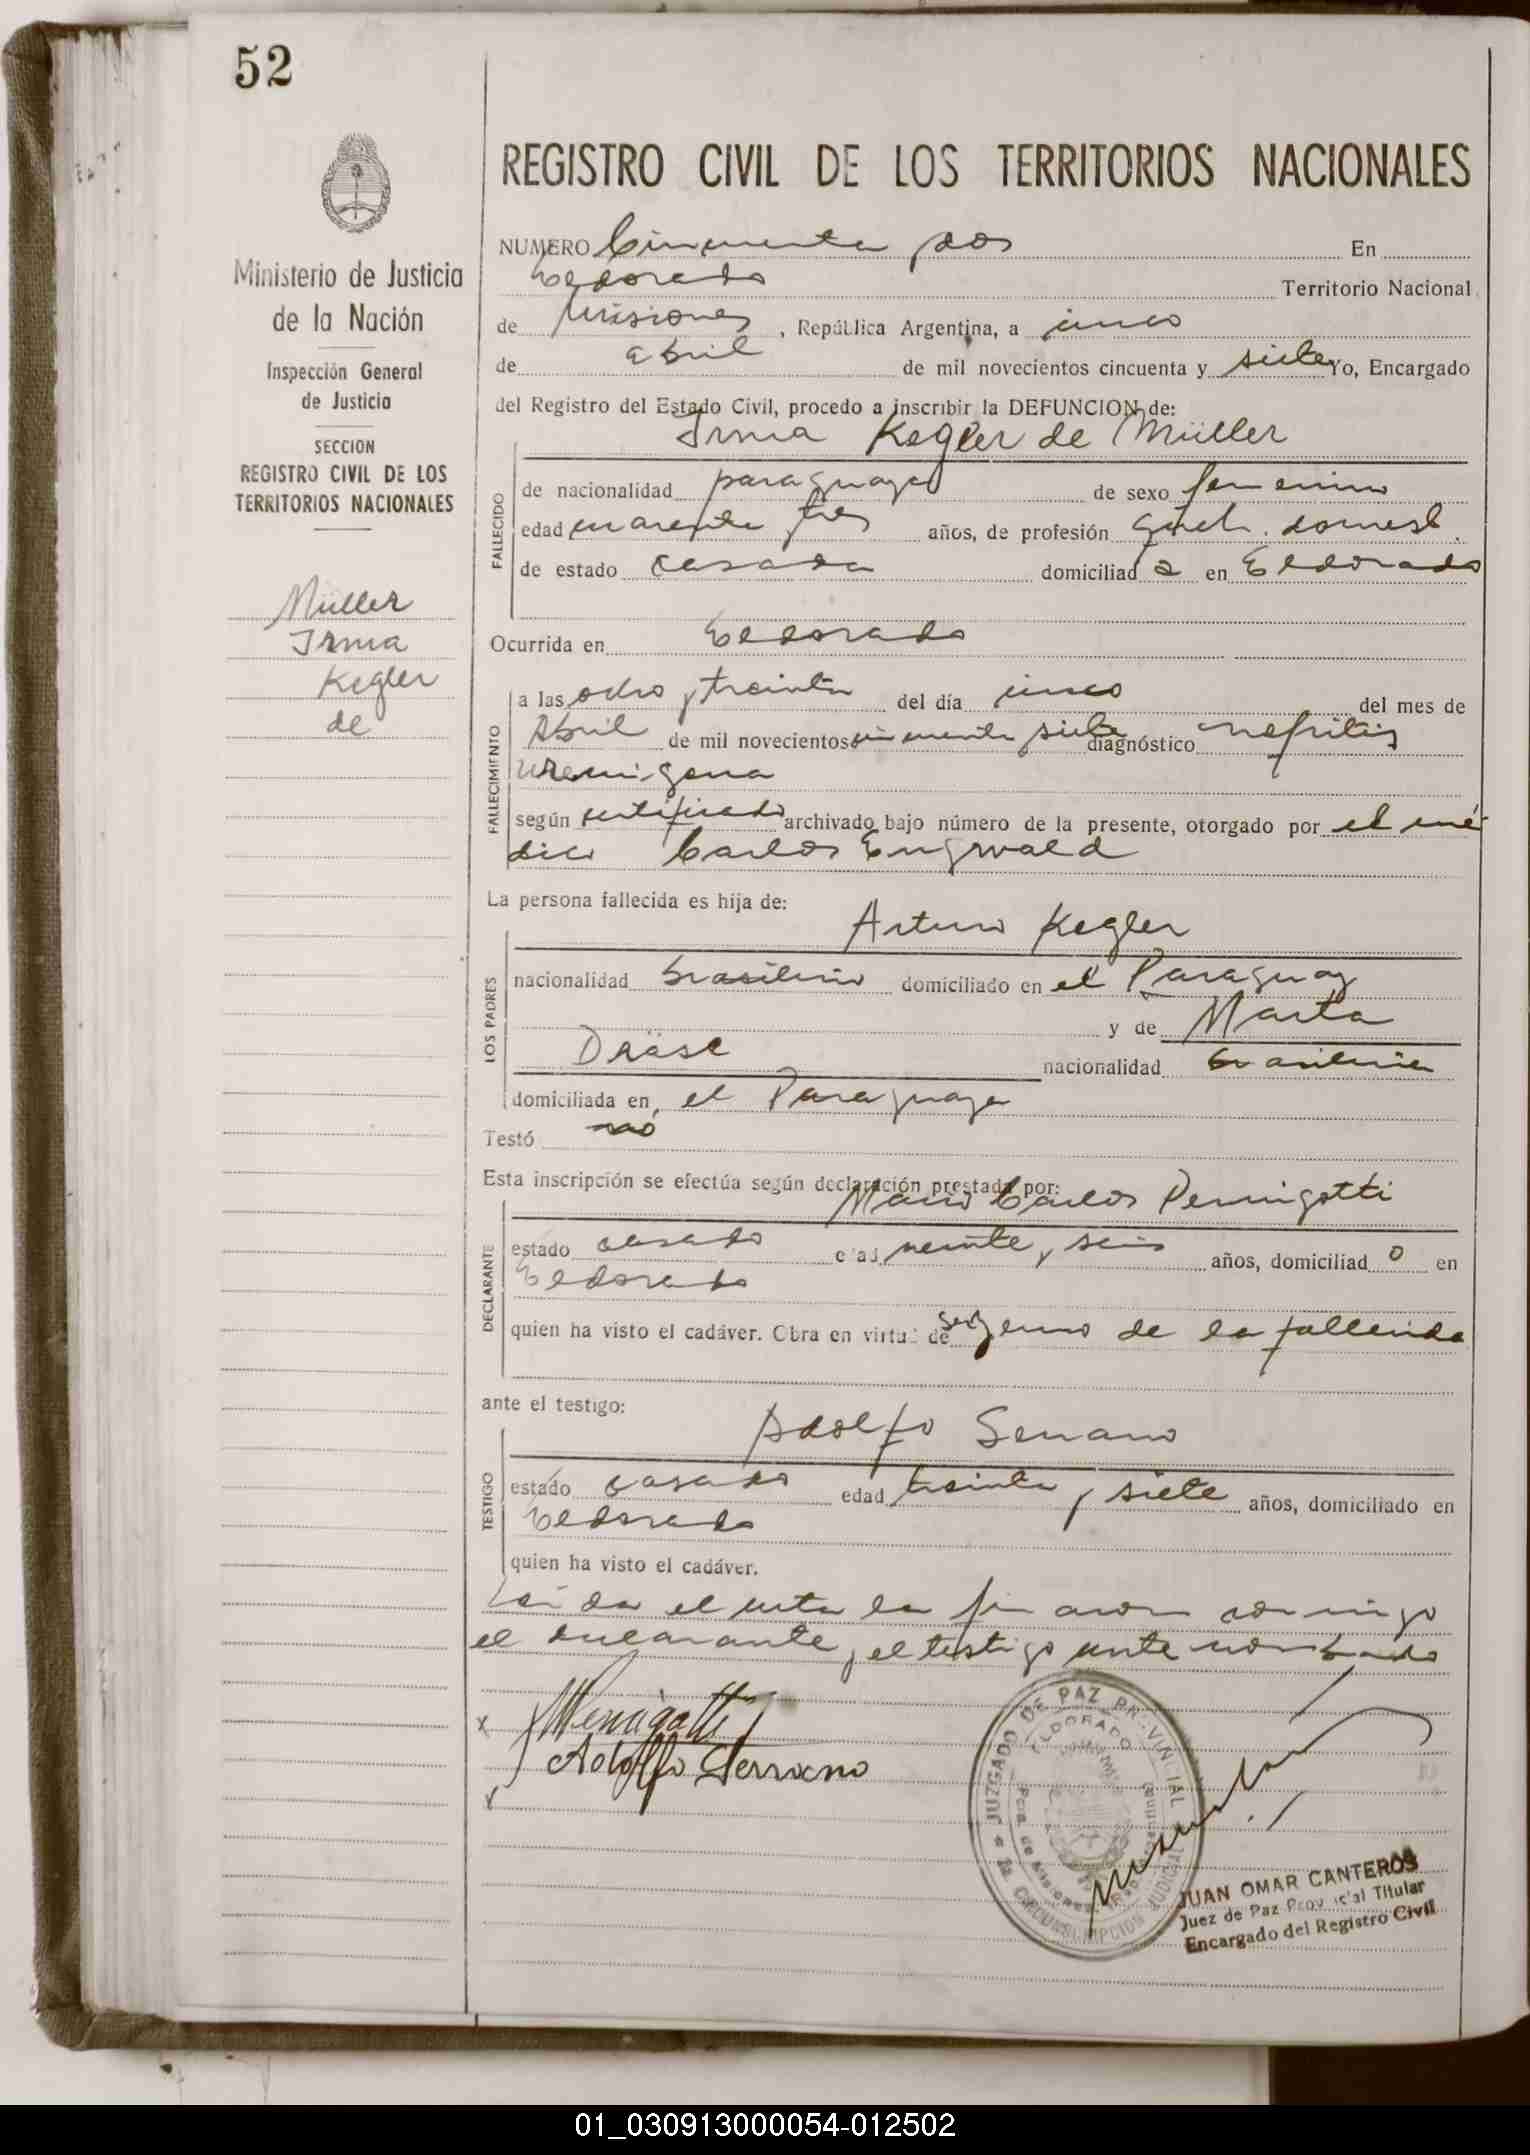 52
Ministerio de Justicia
de la Nación
Inspección General
de Justicia
SECCION
REGISTRO CIVIL DE LOS
TERRITORIOS NACIONALES
Müller
Irma
Kegler
de
REGISTRO CIVIL DE LOS TERRITORIOS NACIONALES
NUMERO Cincuenta dos En
Eldorado Territorio Nacional
de Misiones, República Argentina, a cinco
de abril de mil novecientos cincuenta y siete Yo, Encargado
del Registro del Estado Civil, procedo a inscribir la DEFUNCION de:
Irma Kegler de Müller
FALLECIDO
de nacionalidad paraguaya de sexo femenino
edad cuarenta tres años, de profesión queh. domest.
de estado casada domiciliad a en Eldorado
Ocurrida en Eldorado
FALLECIMIENTO
a las ocho y treinta del día cinco del mes de
Abril de mil novecientos cincuenta siete diagnóstico nefritis
uremigena
según certificado archivado bajo número de la presente, otorgado por el mé
dico Carlos Engwald
La persona fallecida es hija de:
Arturo Kegler
LOS PADRES
nacionalidad brasilero domiciliado en el Paraguay
y de Marta
Dräse nacionalidad brasilera
domiciliada en el Paraguay
Testó no
Esta inscripción se efectúa según declaración prestada por:
Mario Carlos Pernigotti
DECLARANTE
estado casado edad veinte y seis años, domiciliad o en
Eldorado
quien ha visto el cadáver. Obra en virtud de ser yerno de la fallecida
ante el testigo:
Adolfo Serrano
TESTIGO
estado casado edad treinta y siete años, domiciliado en
Eldorado
quien ha visto el cadáver.
Leída el acta la firmaron conmigo
el declarante y el testigo ante nombrado
x MPernigotti
Adolfo Serrano
JUZGADO DE PAZ PROVINCIAL
ELDORADO
CIRCUNSCRIPCION JUDICIAL
Pcia. de Misiones
JUAN OMAR CANTEROS
Juez de Paz Provincial Titular
Encargado del Registro Civil
01_030913000054-012502